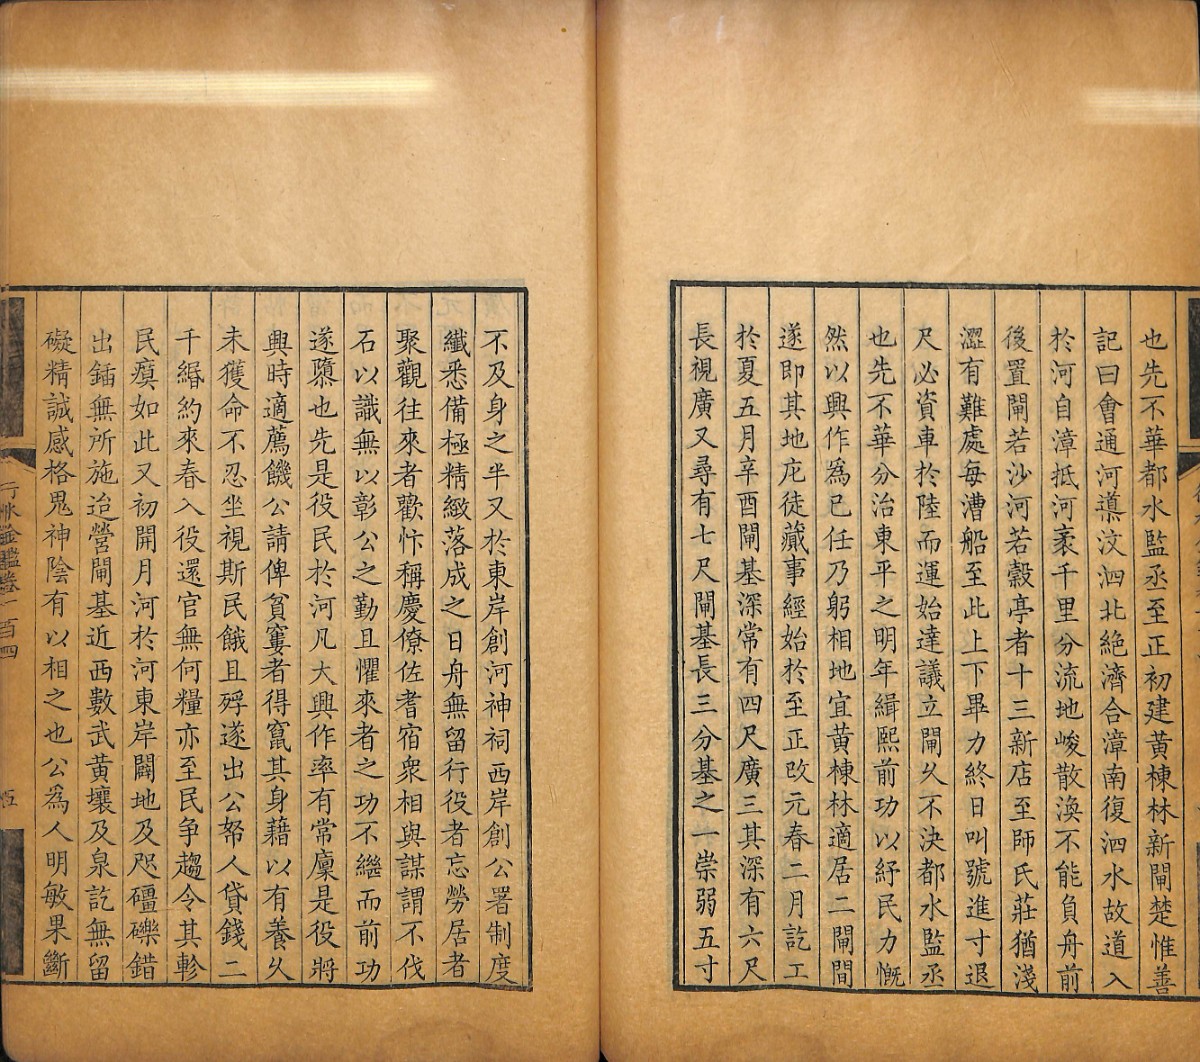 也先不華都水監丞至正初建黃棟林新閘楚惟善
記曰會通河導汶泗北絕濟合漳南復泗水故道入
於河自漳抵河袤千里分流地峻散渙不能負舟前
後置閘若沙河若穀亭者十三新店至師氏莊猶淺
澀有難處每漕船至此上下畢力終日叫號進寸退
尺必資車於陸而運始達議立閘久不決都水監丞
也先不華分治東平之明年緝熙前功以紓民力慨
然以興作為己任乃躬相地宜黃棟林適居二閘間
遂即其地庀徒蕆事經始於至正改元春二月訖工
於夏五月辛酉閘基深常有四尺廣三其深有六尺
長視廣又尋有七尺閘基長三分基之一崇弱五寸
不及身之半又於東岸創河神祠西岸創公署制度
纖悉備極精緻落成之日舟無留行役者忘勞居者
聚觀往來者歡忭稱慶僚佐耆宿衆相與謀謂不伐
石以識無以彰公之勤且懼來者之功不繼而前功
遂隳也先是役民於河凡大興作率有常廩是役將
興時適薦饑公請俾貧窶者得竄其身藉以有養久
未獲命不忍坐視斯民餓且殍遂出公帑人貸錢二
千緡約來春入役還官無何糧亦至民争趨令其軫
民瘼如此又初開月河於河東岸闢地及咫礓礫錯
出鍤無所施迨營閘基近西數武黃壤及泉訖無留
礙精誠感格鬼神陰有以相之也公為人明敏果斷
行水金鑑卷一百四
五